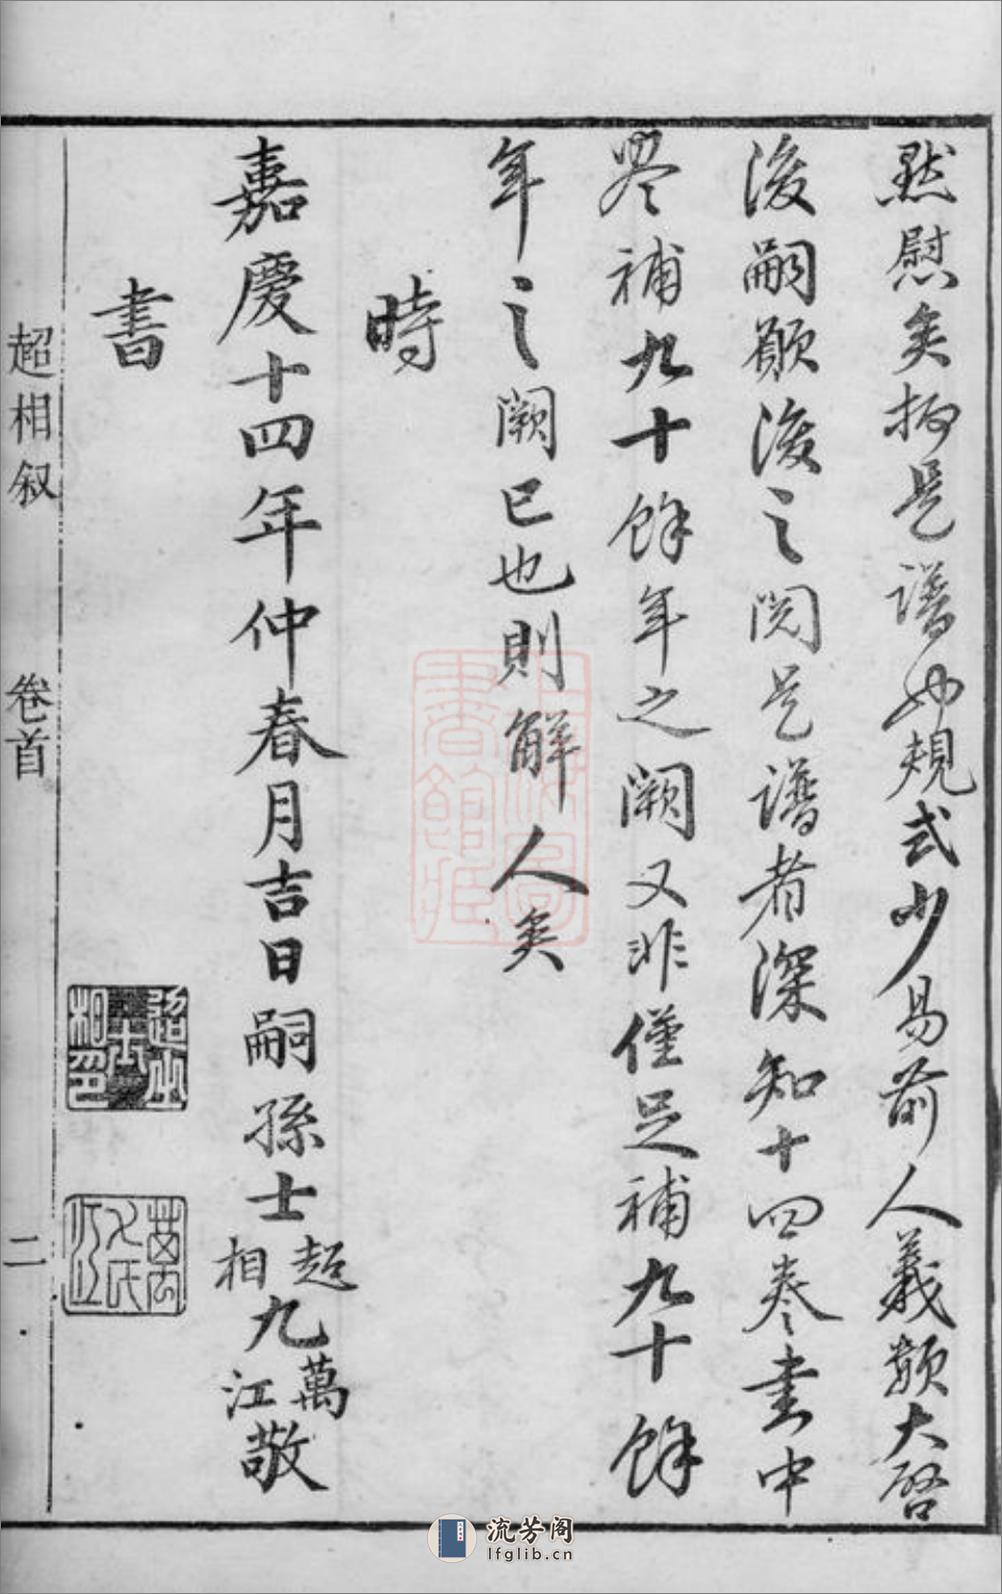 然慰矣抑是譜也規式少易前人義類大啓
後嗣願後之閱是譜者深知十四卷書中
不啻補九十餘年之闕又非僅足補九十餘
年之闕已也則解人矣
時
嘉慶十四年仲春月吉日嗣孫士超相九萬江敬
書
超相叙
卷首
二
流芳阁
lfglib.cn